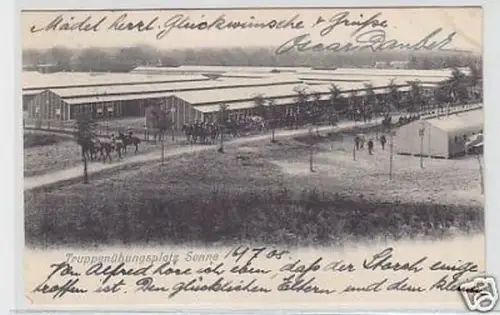 Mädel herzl. Glückwünsche & Grüsse
Oscar Danker
Truppenübungsplatz Senne 14/7 05.
Von Alfred höre ich eben, daß der Storch
troffen ist. Den glücklichen Eltern und dem